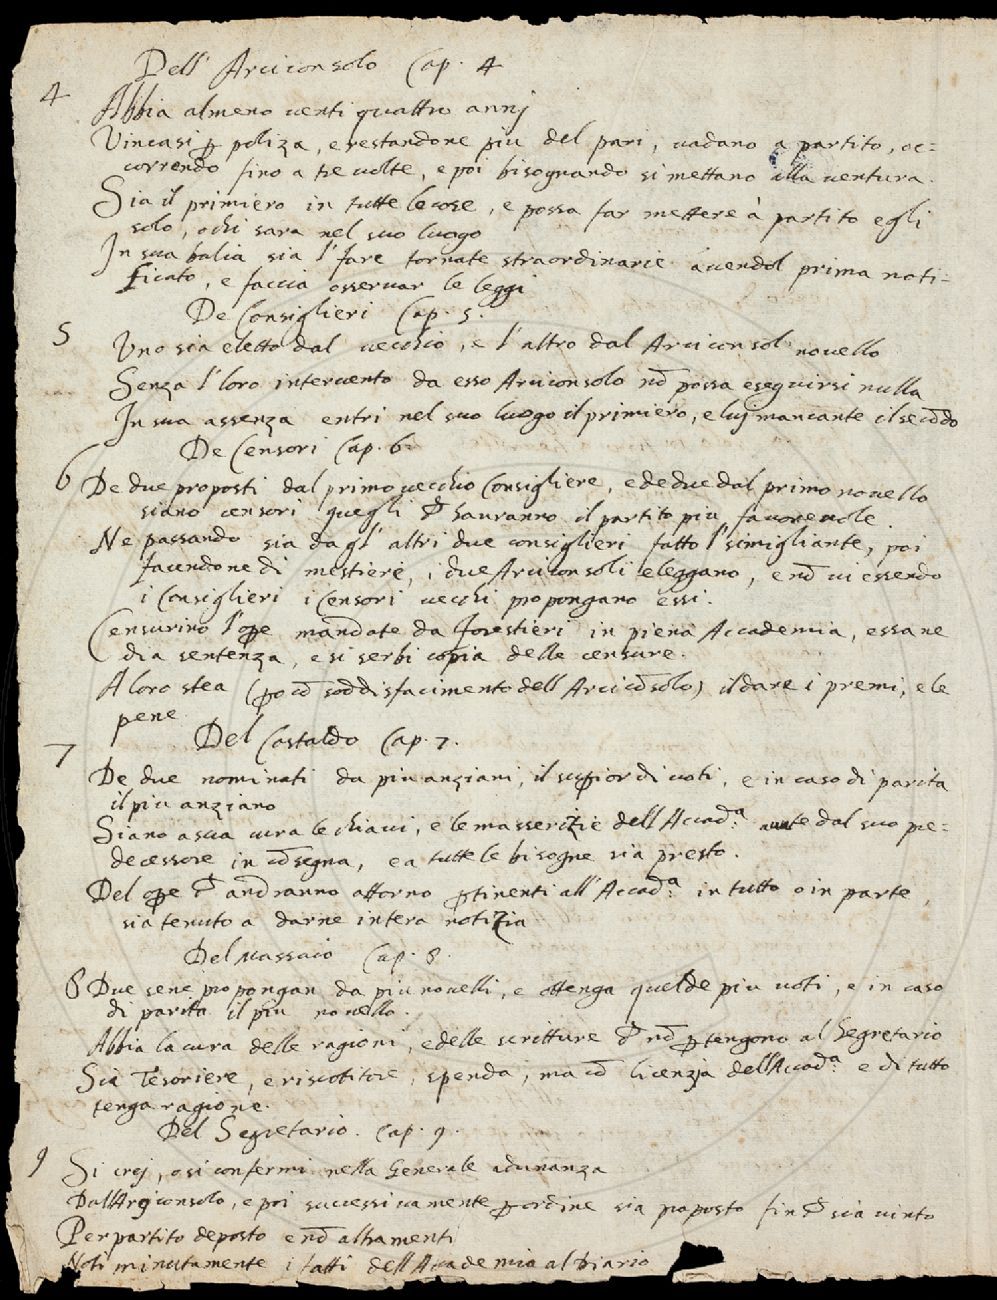 Dell' Arciconsolo Cap. 4
4
Abbia almeno venti quattro annj
Vincasi p poliza, e restandone piu del pari, vadano a partito, oc=
correndo fino a tre volte, e poi bisognando si mettano alla ventura.
Sia il primiero in tutte le cose, e possa far mettere à partito egli
solo, o chi sara nel suo luogo
In sua balia sia l'fare tornate straordinarie avendol prima noti-
ficato, e faccia osservar le leggi
De Consiglieri Cap. 5.
5
Uno sia eletto dal vecchio, e l'altro dal Arciconsol novello
Senza l'loro intervento da esso Arciconsolo nō possa eseguirsi nulla
In sua assenza entri nel suo luogo il primiero, e luj mancante il secōdo
De Censori Cap. 6
6 De due proposti dal primo vecchio Consigliere, e de due dal primo novello
siano censori quegli ch hauranno il partito piu favorevole.
Ne passando sia dagl' altri due consiglieri fatto l'simigliante, poi
facendone di mestiere, i due Arciconsoli eleggano, e nō vi essendo
i Consiglieri i Censori vecchi propongano essi.
Censurino l'ope mandate da forestieri in piena Accademia, essa ne
dia sentenza, e si serbi copia delle censure.
A loro stea (po cō soddisfacimento dell Arcicōsolo) il dare i premi, e le
pene
Del Castaldo Cap. 7.
7
De due nominati da piu anziani, il supior di voti, e in caso di parita
il piu anziano
Siano a sua cura le chiavi, e le masserizie dell'Accad.a avute dal suo pre=
decessore in cōsegna, e a tutte le bisogne sia presto.
Del ope ch andranno attorno ptinenti all'Accad.a in tutto o in parte
sia tenuto a darne intera notizia
Del Massaio Cap. 8.
8 Due se ne propongan da piu novelli, e ottenga quel de piu voti, e in caso
di parita il piu novello.
Abbia la cura delle ragioni, e delle scritture ch nō ptengono al Segretario
Sia Tesoriere, e riscotitore, spenda, ma cō licenzia dell'Accad.a e di tutto
tenga ragione.
Del Segretario. Cap. 9.
9
Si crej, o si confermi nella Generale adunanza
Dall'Arciconsolo, e poi successivamente p ordine sia proposto fin ch sia vinto
Per partito deposto e nō altramenti
Noti minutamente i fatti dell'Accademia al Diario